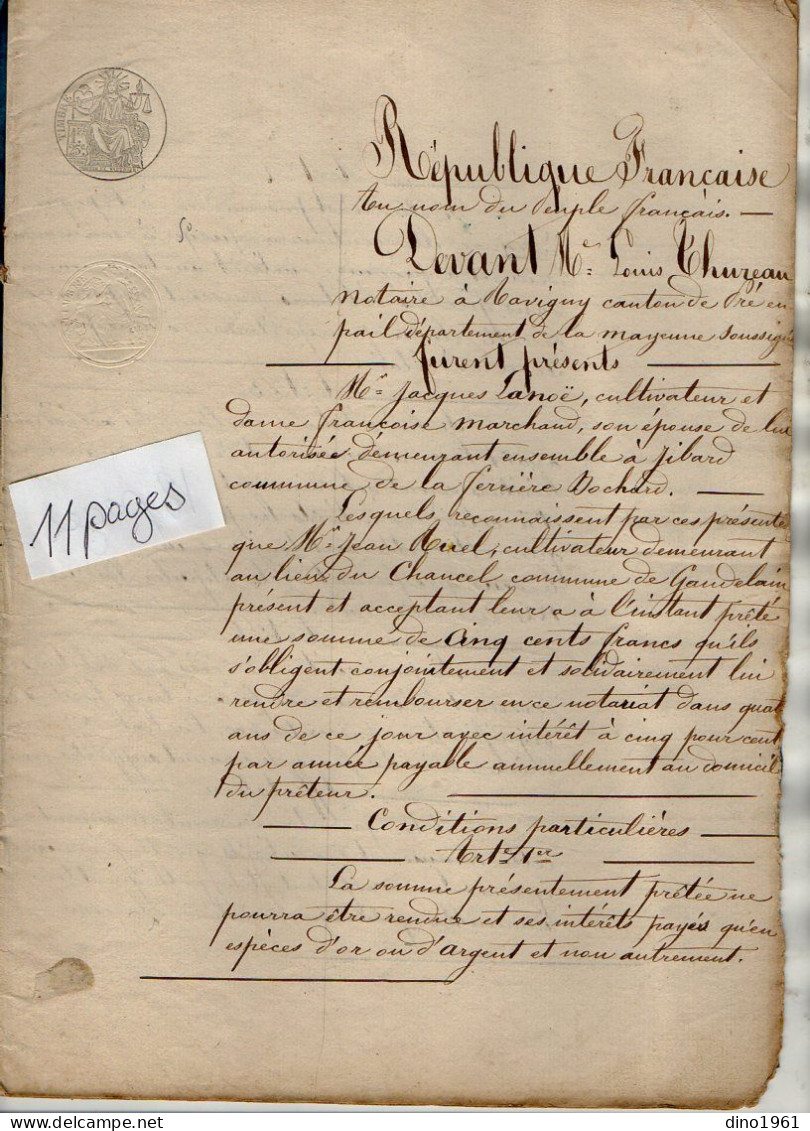 TIMBRE
République Française
Au nom du Peuple français. —
Devant Me. Louis Thuzeau
notaire à Ravigny canton de Pré en
pail département de la mayenne soussigné
furent présents
Mr. Jacques Lanoë, cultivateur et
dame françoise marchand, son épouse de lui
autorisée demeurant ensemble à Jibard
commune de la ferrière Bochard. —
11 pages
Lesquels, reconnaissent par ces présente
que Mr. Jean Ruel, cultivateur demeurant
au lieu du Chancel commune de Gandelain
présent et acceptant leur a à l'instant prêté
une somme de cinq cents francs qu'ils
s'obligent conjointement et solidairement lui
rendre et rembourser en ce notariat dans quat
ans de ce jour avec intérêt à cinq pour cent
par année payable annuellement au domicil
du prêteur. —
— Conditions particulières —
— Arte. 1er —
La somme présentement prêtée ne
pourra être rendue et ses intérêts payés qu'en
espèces d'or ou d'argent et non autrement.
dino1961